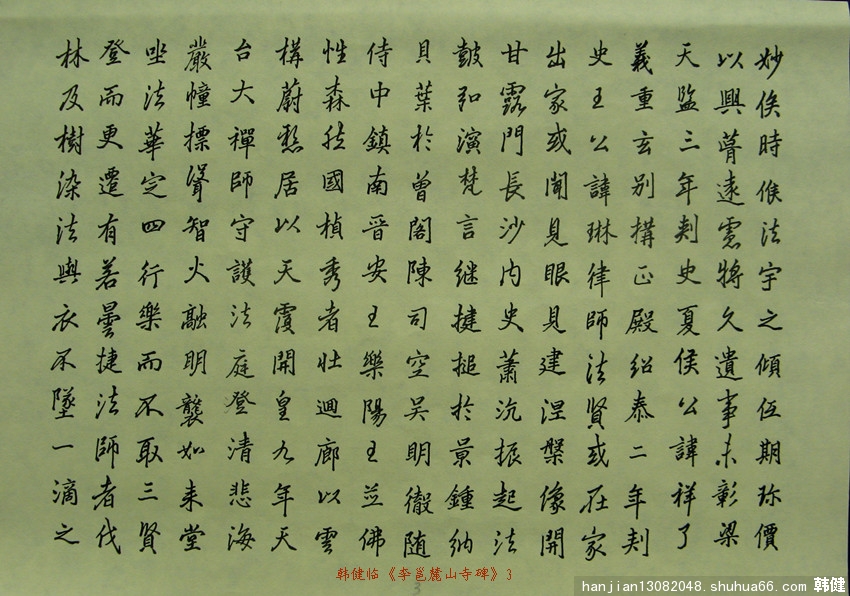 妙俟時候法宇之傾伍期珎價
以興薈遠慮將久遺事未彰梁
天監三年刾史夏侯公諱祥了
義重玄别構正殿紹泰二年刾
史王公諱琳律師法賢或在家
出家或聞見眼見建涅槃像開
甘露門長沙内史蕭沇振起法
皷弘演梵言继揵搥於景鍾納
貝葉於曾閣陳司空吴明徹随
侍中鎮南晋安王樂陽王並佛
性森然國楨秀者壯迴廊以雲
構蔚懸居以天霞開皇九年天
台大禪師守護法庭登清悲海
嚴幢摽聳智火融明襲如来堂
坐法華定四行樂而不取三賢
登而更遷有若曇捷法師者伐
林及樹染法與衣不墜一滴之
韩健临《李邕麓山寺碑》3
hanjian13082048.shuhua66.com 韩健